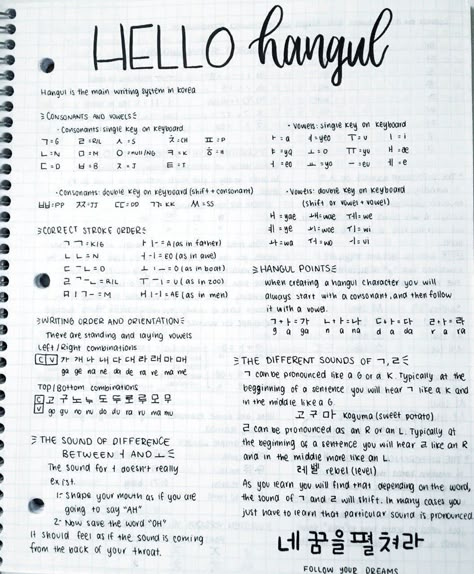 HELLO hangul
Hangul is the main writing system in korea
CONSONANTS AND VOWELS
· Consonants: single key on keyboard
ㄱ=G ㄹ=R/L ㅅ=S ㅊ=CH ㅍ=P
ㄴ=N ㅁ=M ㅇ=NULL/NG ㅋ=K ㅎ=H
ㄷ=D ㅂ=B ㅈ=J ㅌ=T
· Vowels: single key on keyboard
ㅏ=a ㅕ=yeo ㅜ=u ㅣ=i
ㅑ=ya ㅗ=o ㅠ=yu ㅐ=ae
ㅓ=eo ㅛ=yo ㅡ=eu ㅔ=e
· Consonants: double key on keyboard (shift + consonant)
ㅃ=PP ㅉ=JJ ㄸ=DD ㄲ=KK ㅆ=SS
· Vowels: double key on keyboard
(shift or vowel + vowel)
ㅒ=yae ㅙ=wae ㅞ=we
ㅖ=ye ㅚ=woe ㅟ=wi
ㅘ=wa ㅝ=wo ㅢ=
CORRECT STROKE ORDER
ㄱ=K/G (as in father)
ㄴ=N =EO (as in awe)
=O (as in boat)
=R/L =U (as in zoo)
=M =AE (as in men)
HANGUL POINTS
when creating a hangul character you will
always start with a consonant, and then follow
it with a vowel.
ㄱ+ㅏ=가 ㄴ+ㅏ=나 ㄷ+ㅏ=다 ㄹ+ㅏ=라
g a ga n a na d a da r a ra
WRITING ORDER AND ORIENTATION
There are standing and laying vowels
Left/Right combinations
C V 가 개 나 내 다 대 라 래 마 매
ga gae na nae da dae ra rae ma mae
Top/Bottom combinations
C V 고 구 노 누 도 두 로 루 모 무
go gu no nu do du ro ru mo mu
THE DIFFERENT SOUNDS OF ㄱ,ㄹ
ㄱ can be pronounced like a G or a K. Typically at the
begginning of a sentence you will hear ㄱ like a K and
in the middle like a G.
고구마 Koguma (sweet potato)
ㄹ can be pronounced as an R or an L. Typically at
the beginning of a sentence you will hear ㄹ like an R
and in the middle more like an L.
레벨 rebel (level)
As you learn you will find that depending on the word,
the sound of ㄱ and ㄹ will shift. In many cases you
just have to learn that particular sound is pronounced.
THE SOUND OF DIFFERENCE
BETWEEN ㅓ AND ㅗ
The sound for ㅓ doesn't really
exist.
1: Shape your mouth as if you are
going to say "AH"
2: Now save the word "OH"
It should feel as if the sound is coming
from the back of your throat.
네 꿈을 펼쳐라
FOLLOW YOUR DREAMS